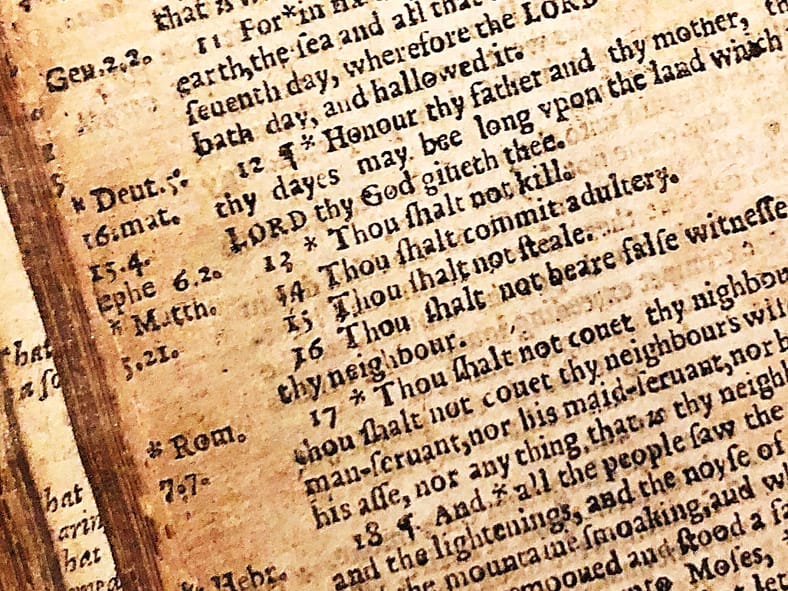 that
11 For * in
Gen.2.2. earth, the ſea and all that
ſeuenth day, wherefore the LORD
bath day, and hallowed it.
* Deut.5. 12 ¶ * Honour thy father and thy mother,
16.mat. thy dayes may bee long vpon the land which
15.4. LORD thy God giueth thee.
ephe 6.2. 13 * Thou ſhalt not kill.
* Matth. 14 Thou ſhalt commit adultery.
5.21. 15 Thou ſhalt not ſteale.
16 Thou ſhalt not beare falſe witneſſe
thy neighbour.
17 * Thou ſhalt not couet thy nighbou
* Rom. thou ſhalt not couet thy neighbours wife
7.7. man-ſeruant, nor his maid-ſeruant, nor
his aſſe, nor any thing that is thy neigh
18 ¶ And * all the people ſaw the
and the lightenings, and the noyſe of
* Hebr. the mountaine ſmoaking, and
mooued and ſtood a
Moſes,
let
hat
a ſo
hat
arin
hat